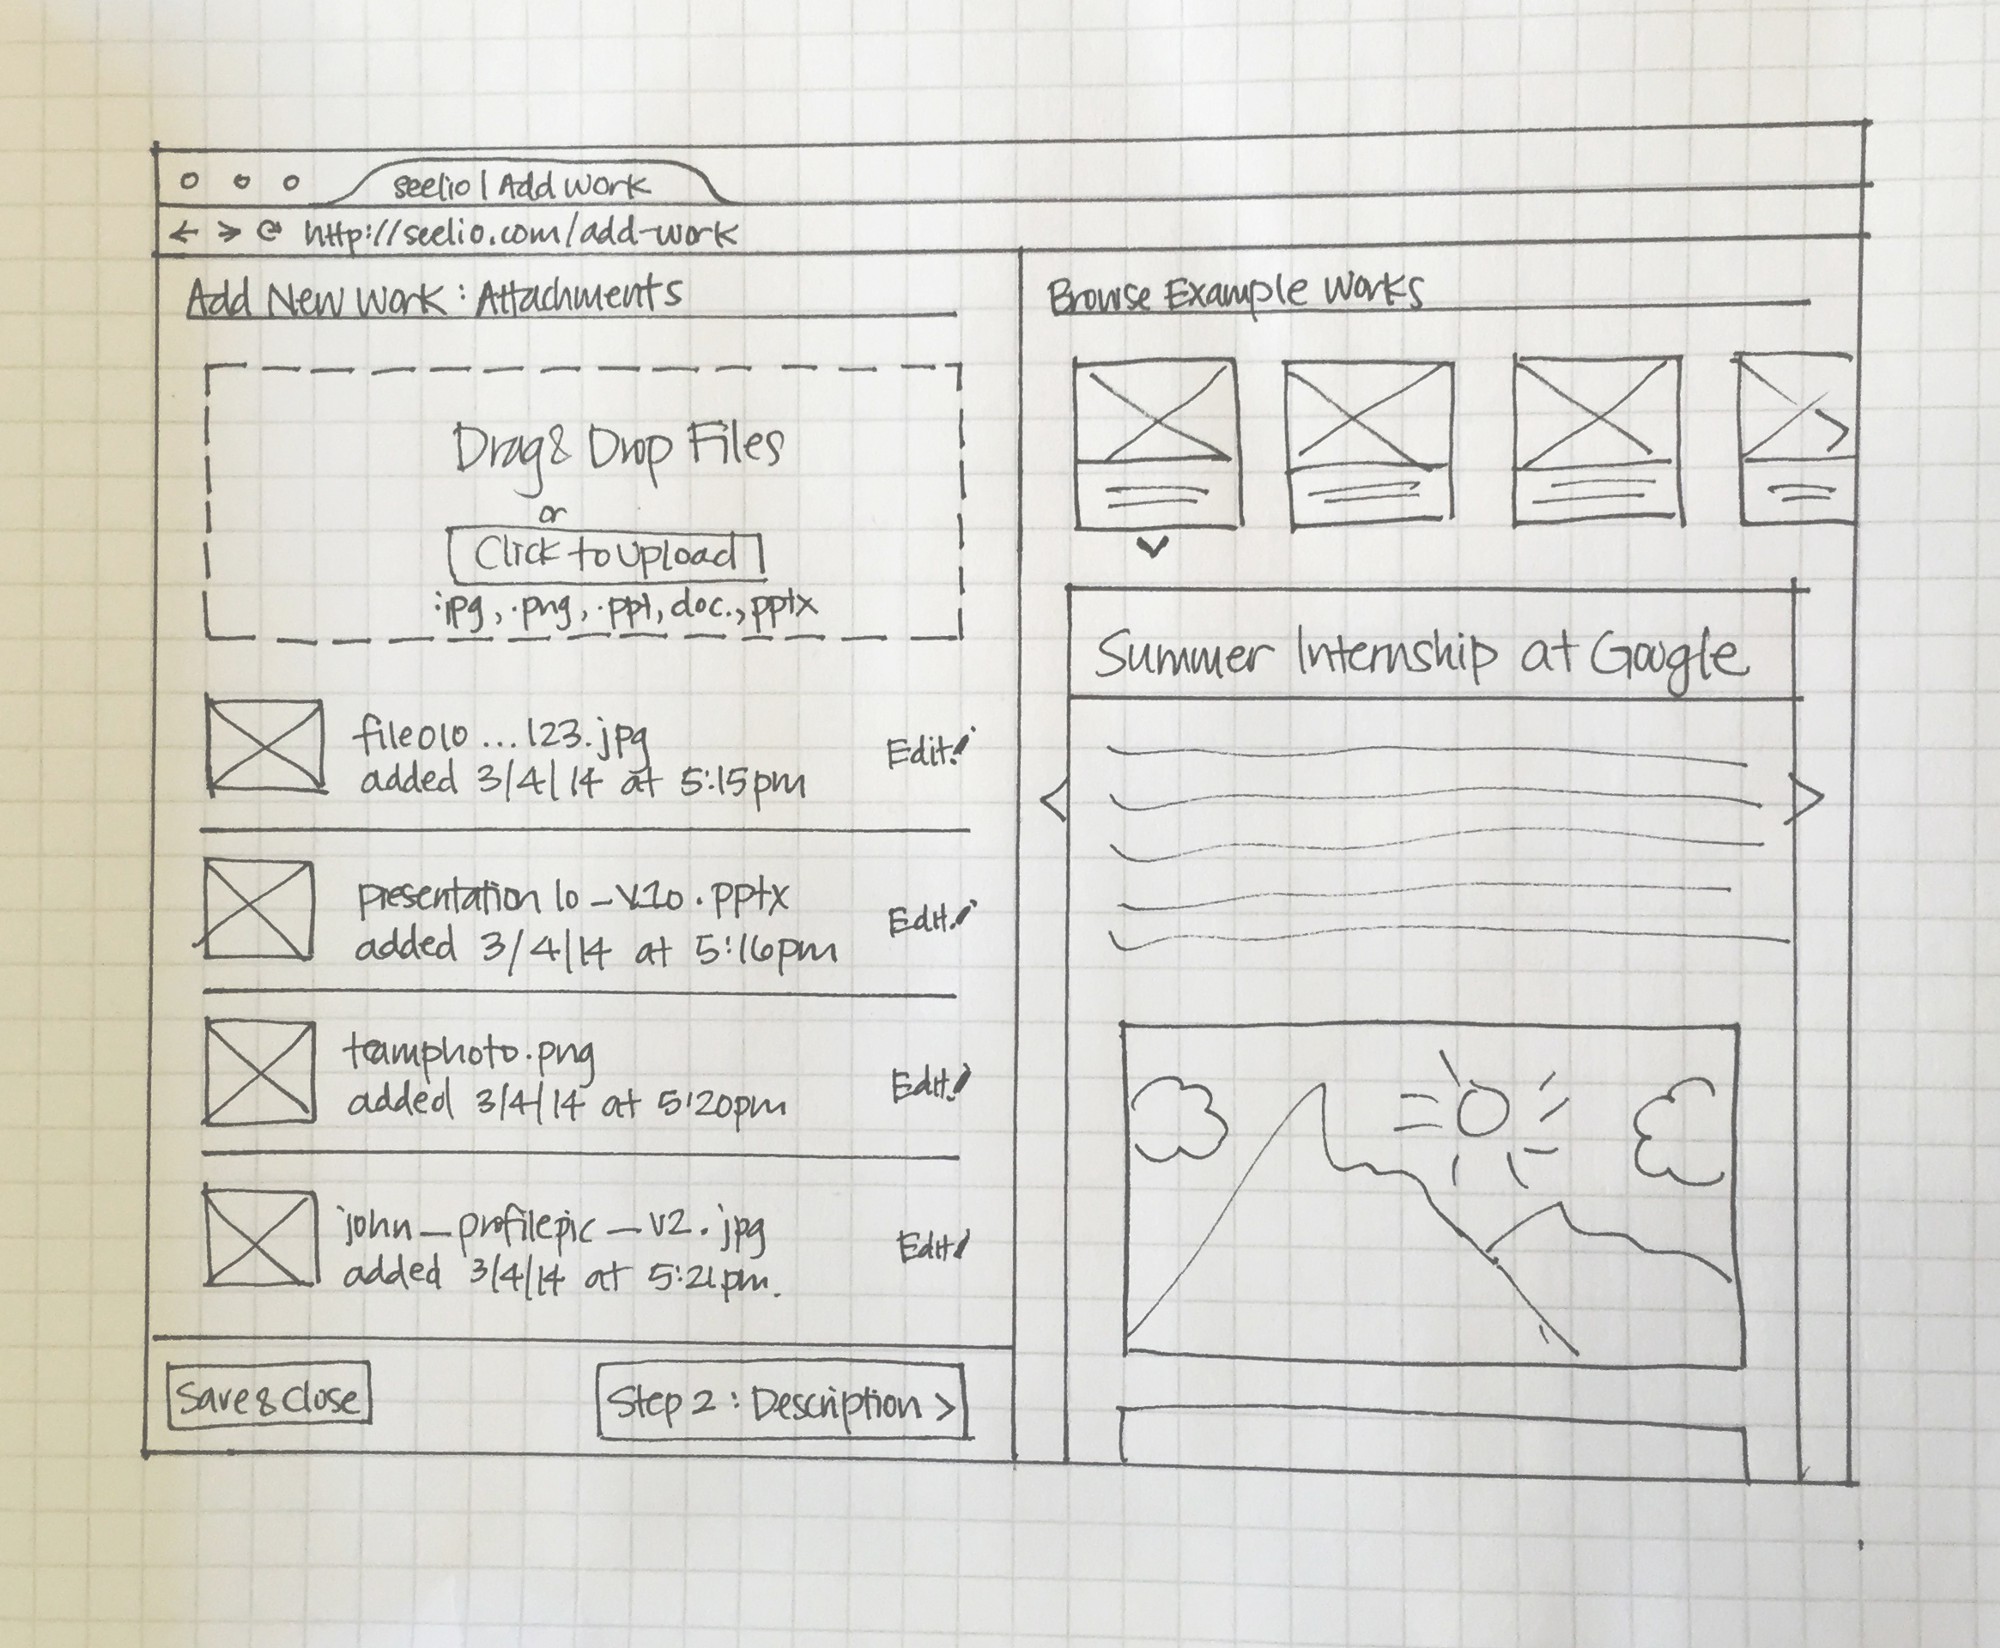 seelio | Add Work
http://seelio.com/add-work
Add New Work: Attachments
Drag & Drop Files
or
Click to Upload
.jpg, .png, .ppt, doc., pptx
file010 ... 123.jpg
added 3/4/14 at 5:15pm
Edit
presentation 10_v.10.pptx
added 3/4/14 at 5:16pm
Edit
teamphoto.png
added 3/4/14 at 5:20pm
Edit
john_profilepic_v2.jpg
added 3/4/14 at 5:21pm.
Edit
Save & Close
Step 2: Description >
Browse Example Works
Summer Internship at Google